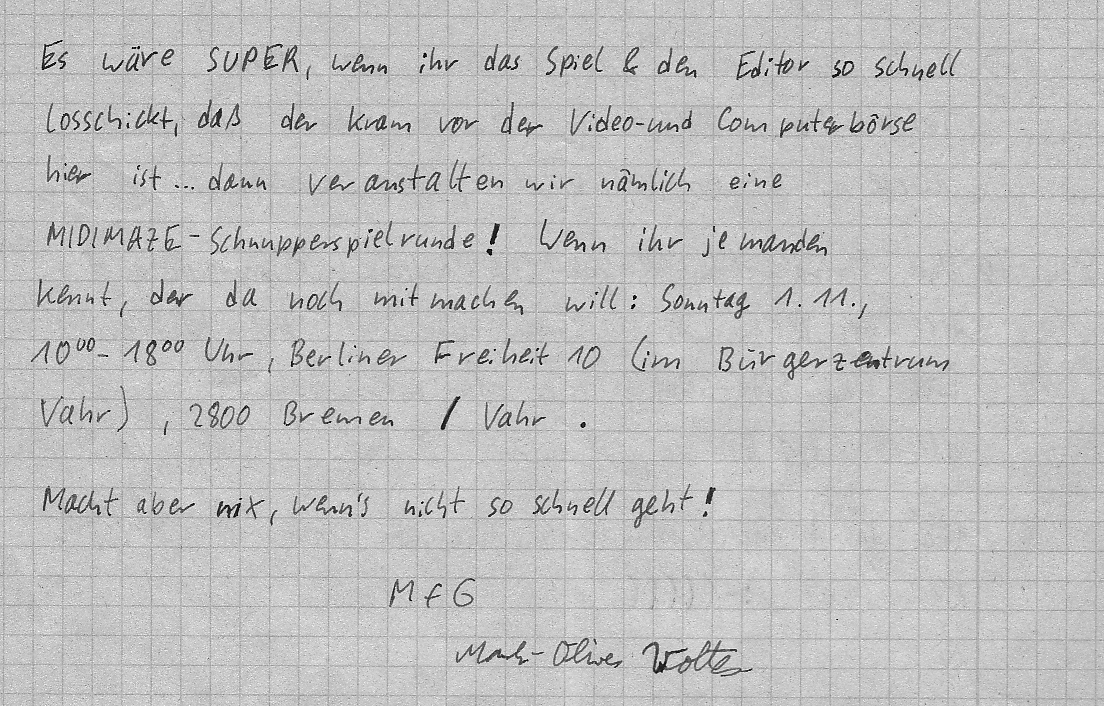 Es wäre SUPER, wenn ihr das Spiel & den Editor so schnell
losschickt, daß der Kram vor der Video-und Computerbörse
hier ist... dann veranstalten wir nämlich eine
MIDIMAZE-Schnupperspielrunde! Wenn ihr jemanden
kennt, der da noch mitmachen will: Sonntag 1.11.,
10⁰⁰-18⁰⁰ Uhr, Berliner Freiheit 10 (im Bürgerzentrum
Vahr), 2800 Bremen / Vahr.
Macht aber nix, wenn's nicht so schnell geht!
MfG
Mark-Oliver Wolter